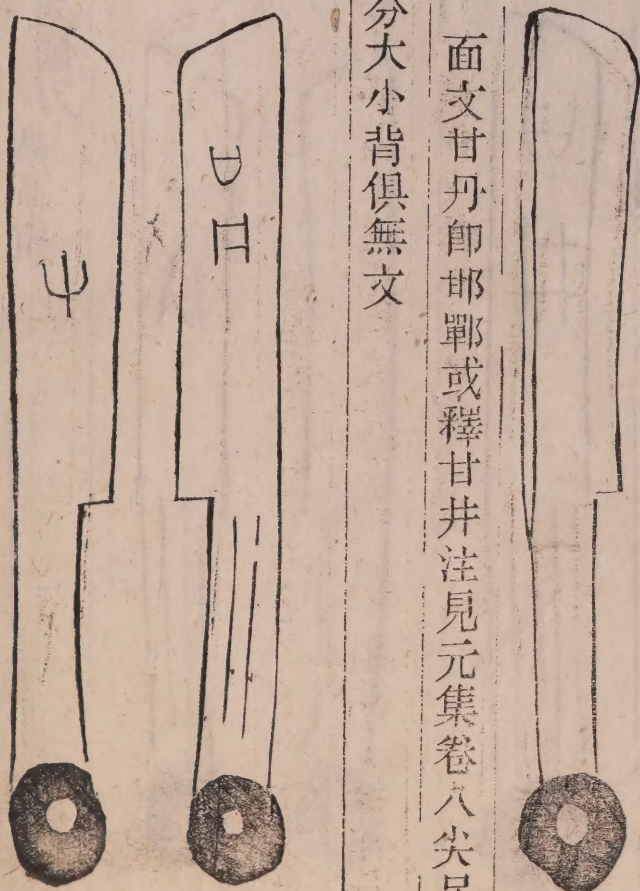 面文甘丹卽邯鄲或釋甘井注見元集卷八尖足
分大小背俱無文